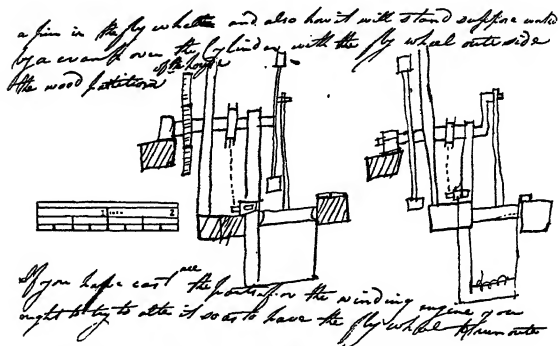 a pin in the fly wheel and also how it will stand suppose work
by a crank over the Cylinder with the fly wheel outside
of the house
the wood partition
1 2
If you have cast all the parts for the winding engine you
ought to try to alter it so as to have the fly wheel to run outer